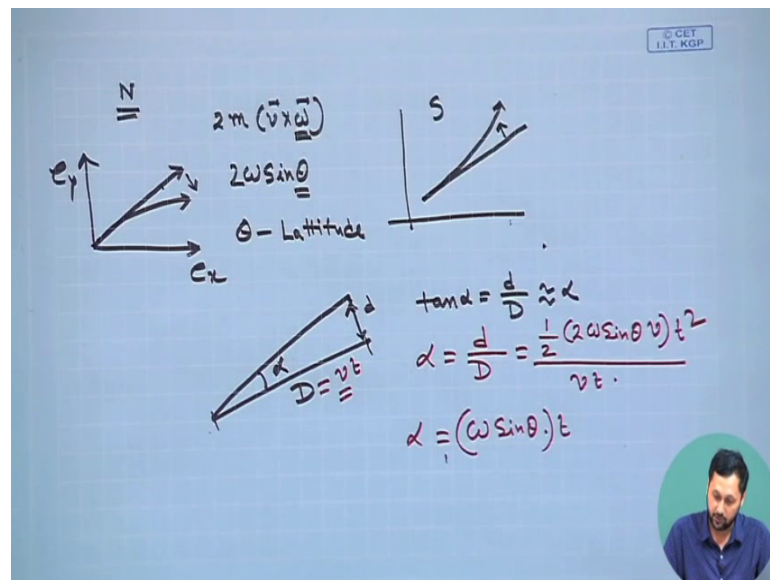 © CET
I.I.T. KGP
N
2m (v⃗ × ω⃗)
2ω Sinθ
θ - Lattitude
e_y
e_x
S
tanα = d/D ≈ α
α = d/D = ½ (2ω Sinθ v) t² / vt.
α = (ω Sinθ.) t
α
d
D = vt